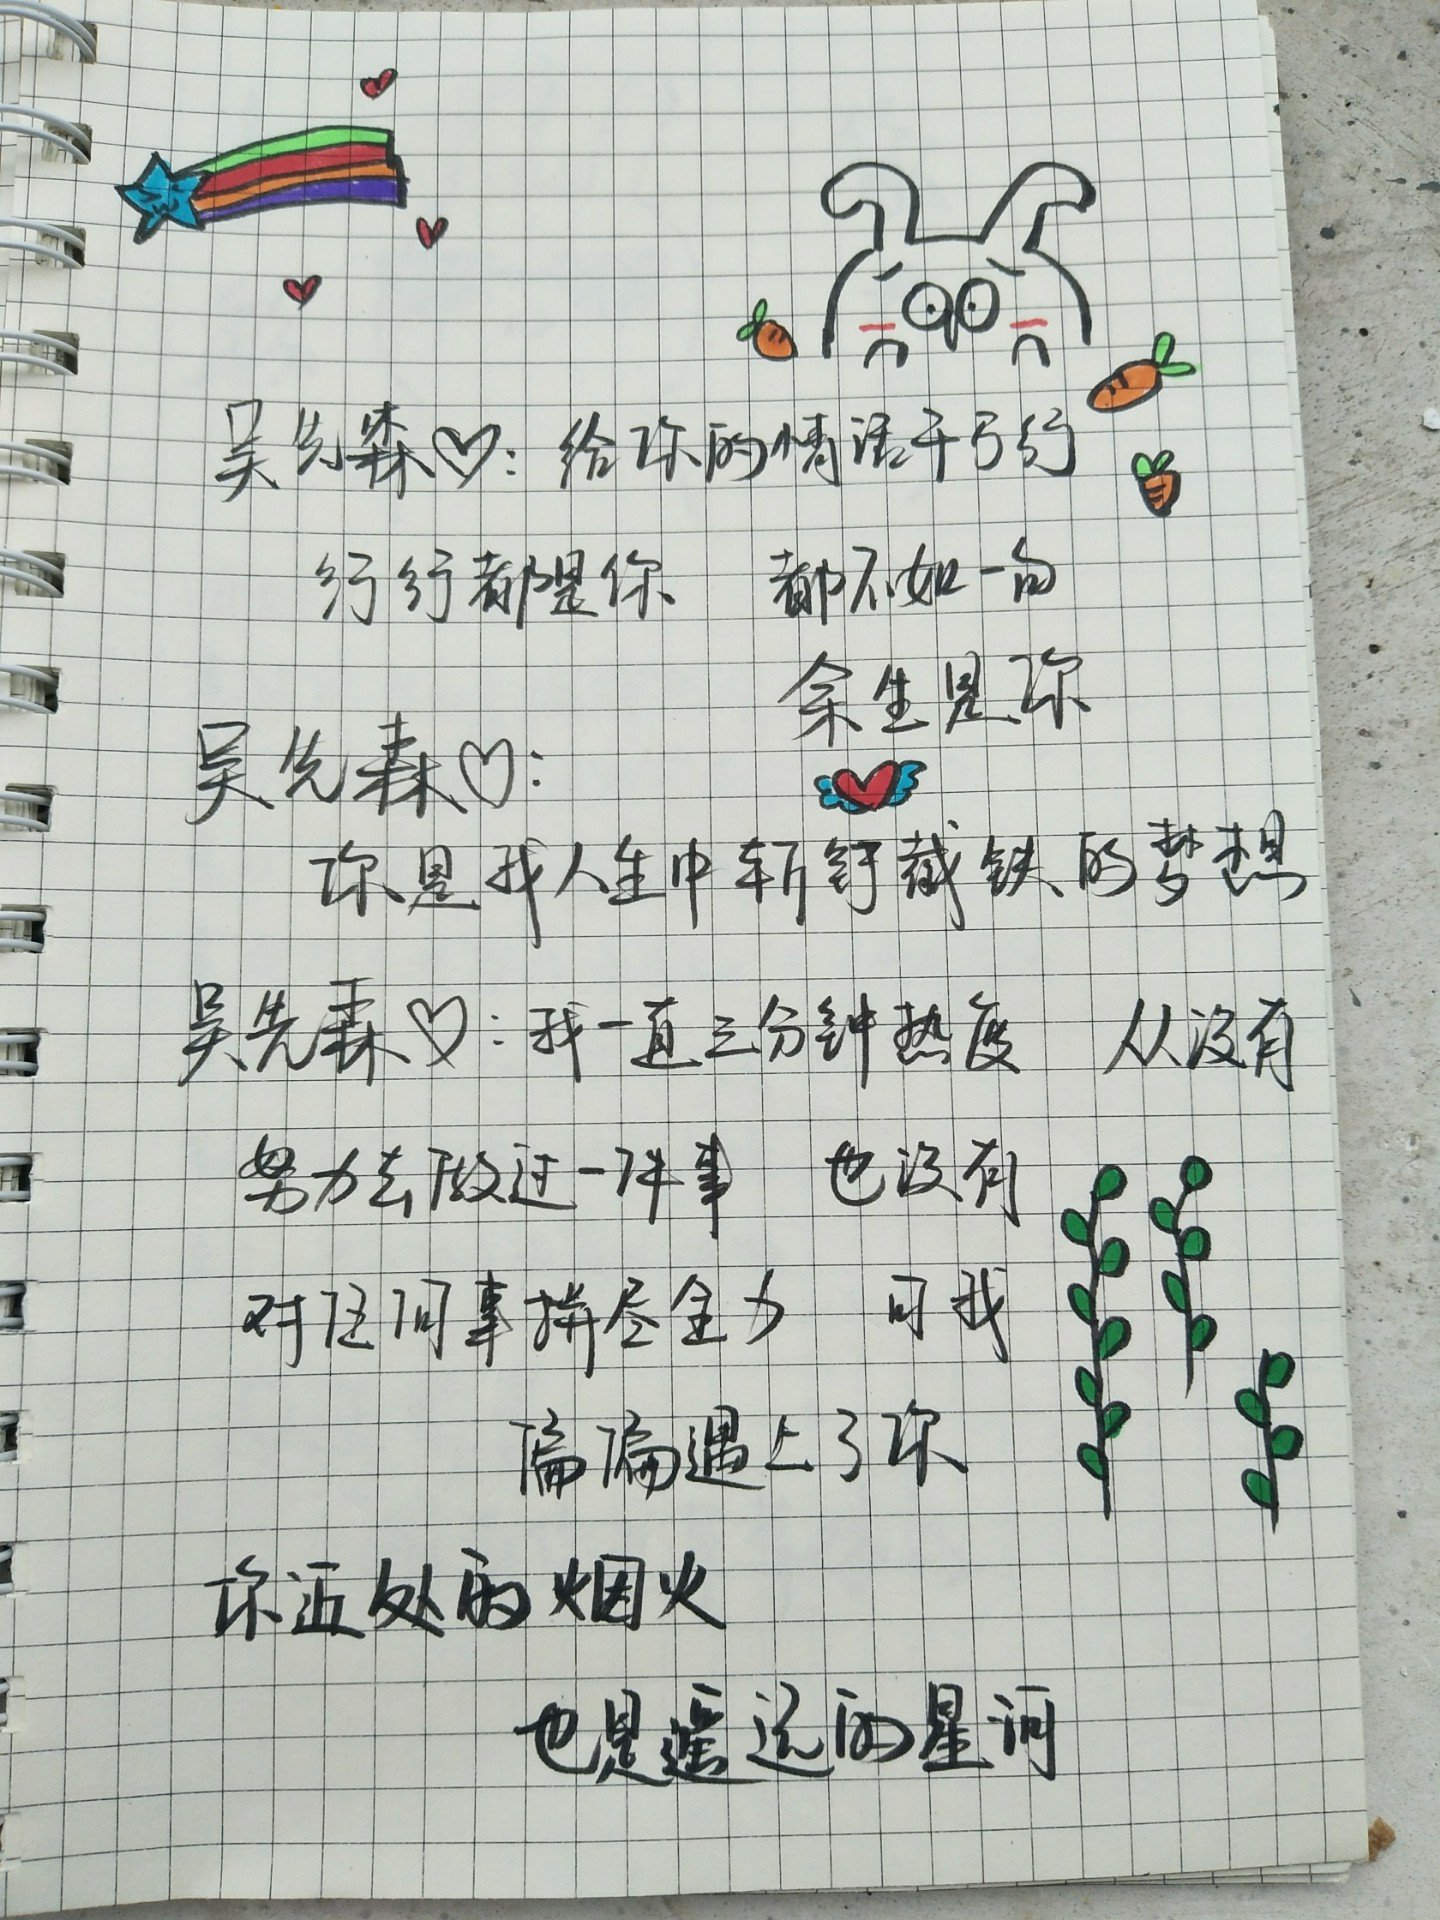 吴先森♡:给你的情话千万行
行行都是你 都不如一句
余生是你
吴先森♡:
你是我人生中斩钉截铁的梦想
吴先森♡:我一直三分钟热度 从没有
努力去做过一件事 也没有
对任何事拼尽全力 可我
偏偏遇上了你
你近处的烟火
也是遥远的星河